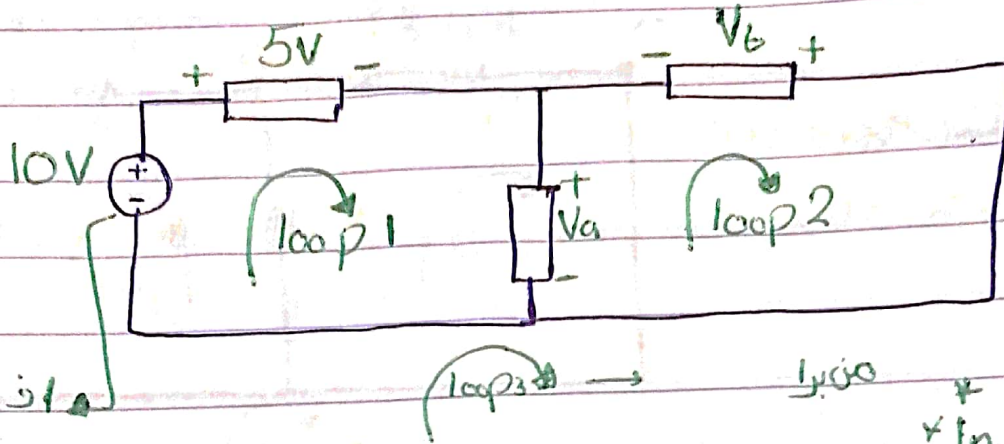 5V
+ -
- Vb +
10V
+
-
loop 1
+
Va
-
loop 2
loop3 → من برا
*